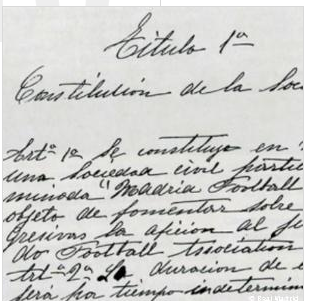 Titulo 1º
Constitución de la Soc
Artº 1º Se constituye en
una Sociedad civil partic
minada "Madrid Football
objeto de fomentar sobre
gresivas la aficion al
do Football Association
Artº 2º La duracion de
será por tiempo indetermin
© Real Madrid